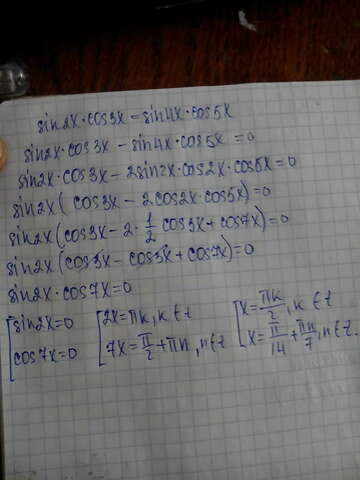 sin2x·cos3x=sin4x·cos5x
sin2x·cos3x - sin4x·cos5x=0
sin2x·cos3x-2sin2x·cos2x·cos5x=0
sin2x( cos3x - 2cos2x·cos5x)=0
sin2x(cos3x-2·1/2 cos3x+cos7x)=0
sin2x(cos3x-cos3x+cos7x)=0
sin2x·cos7x=0
[sin2x=0 [2x=πk, k∈z [x=πk/2, k∈z
cos7x=0 7x=π/2+πn, n∈z x=π/14+πn/7, n∈z.